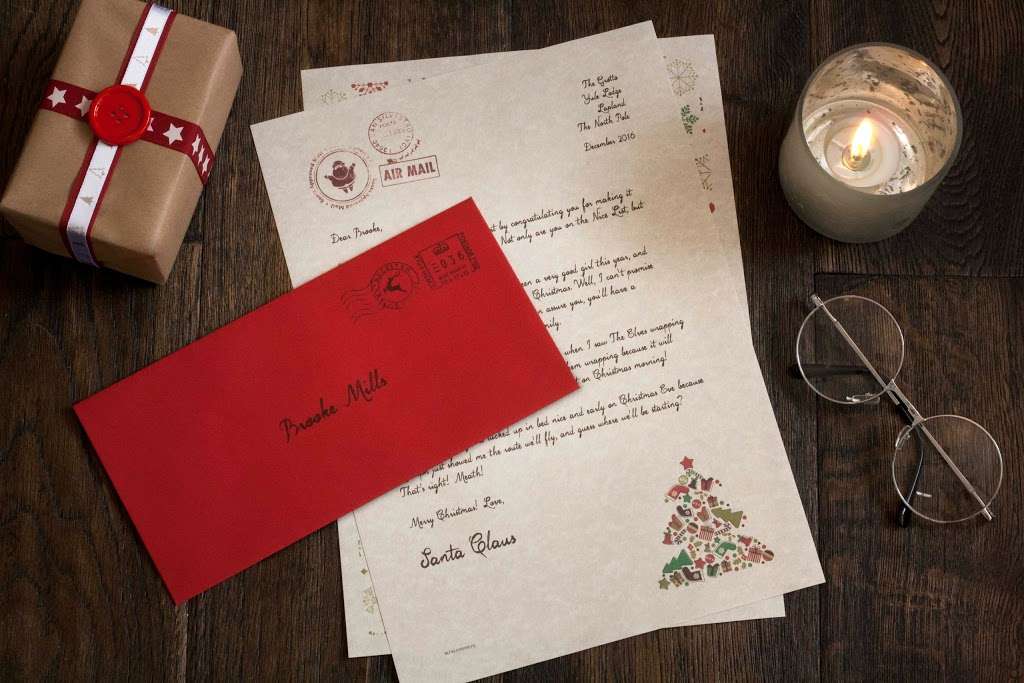 The Grotto
Yule Lodge
Lapland
The North Pole
December 2016
AIR MAIL
Dear Brooke,
by congratulating you for making it
Not only are you on the Nice List, but
a very good girl this year, and
Christmas. Well, I can't promise
assure you, you'll have a
when I saw The Elves wrapping
wrapping because it will
on Christmas morning!
up in bed nice and early on Christmas Eve because
just showed me the route we'll fly, and guess where we'll be starting?
That's right! Meath!
Merry Christmas! Love,
Santa Claus
Brooke Mills